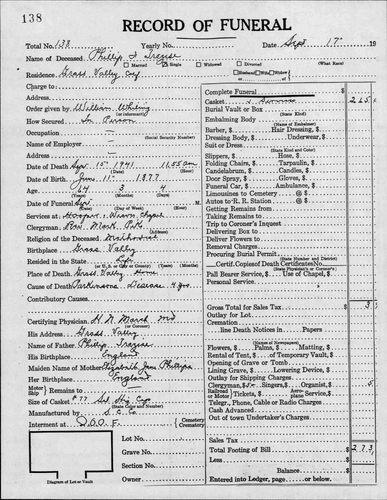 138
RECORD OF FUNERAL
Total No. 138 Yearly No. Date Sept. 17 19
Name of Deceased Phillip J Trezise
Married Single Widowed Divorced (What Race)
Residence Grass Valley Husband Wife Widow
Charge to
Address
Order given by William Whiting
(or informant)
How Secured In Person
Occupation
(Social Security Number)
Name of Employer
Address
Date of Death Sept 15 1941 11.55 am
Date of Birth June 11 1877
Age 64 3 4
(Years) (Months) (Days)
Date of Funeral Sept M.
(Date) (Day of Week) (Hour)
Services at Hooper & Weaver Chapel
Clergyman Rev. Mark
Religion of the Deceased Methodist
Birthplace Grass Valley
Resided in the State Life
(or U.S. or City or County) (Years) (Months)
Place of Death Grass Valley Home
Cause of Death Parkinsons Disease 4 yrs.
Contributory Causes
Certifying Physician H N March MD
(or Coroner)
His Address Grass Valley
Name of Father Phillip Trezise
His Birthplace England
Maiden Name of Mother Elizabeth Jane Phillips
Her Birthplace England
Motor Ship Remains to
Size of Casket
(State Color and Number)
Manufactured by
Interment at I.O.O.F. Cemetery Crematory
Lot No.
Grave No.
Section No.
Owner
Diagram of Lot or Vault
Complete Funeral
Casket & Service 265
Burial Vault or Box
(State Kind)
Embalming Body
(Name of Embalmer)
Barber, $ Hair Dressing, $
Dressing Body, $ Underwear, $
Suit or Dress
(State Kind and Color)
Slippers, $ Hose, $
Folding Chairs, $ Tarpaulin, $
Candelabrum, $ Candles, $
Door Spray, $ Gloves, $
Funeral Car, $ Ambulance, $
Limousines to Cemetery @ $
Autos to R.R. Station @ $
Getting Remains from
Taking Remains to
Trip to Coroner's Inquest
Delivering Box to
Deliver Flowers to
Removal Charges
Procuring Burial Permit
(State Number and District)
Certif. Copies of Death Certificates No.
(State Physician's or Coroner's)
Pall Bearer Service, $ Use of Chapel, $
Personal Service
Gross Total for Sales Tax $ 3
Outlay for Lot
Cremation
line Death Notices in Papers
(Name of Newspapers)
Flowers, $ Palms, $ Matting, $
Rental of Tent, $ of Temporary Vault, $
Opening of Grave or Tomb
Lining Grave, $ Lowering Device, $
Outlay for Shipping Charges
Clergyman, $ 5 Singers, $ Organist, $ 5
Railroad or Motor Tickets, $ Aeroplane service, $
Telegr., Phone, Cable or Radio Charges
Cash Advanced
Out of town Undertaker's Charges
Sales Tax
Total Footing of Bill $ 273
Less
Balance
Entered into Ledger, page or below.